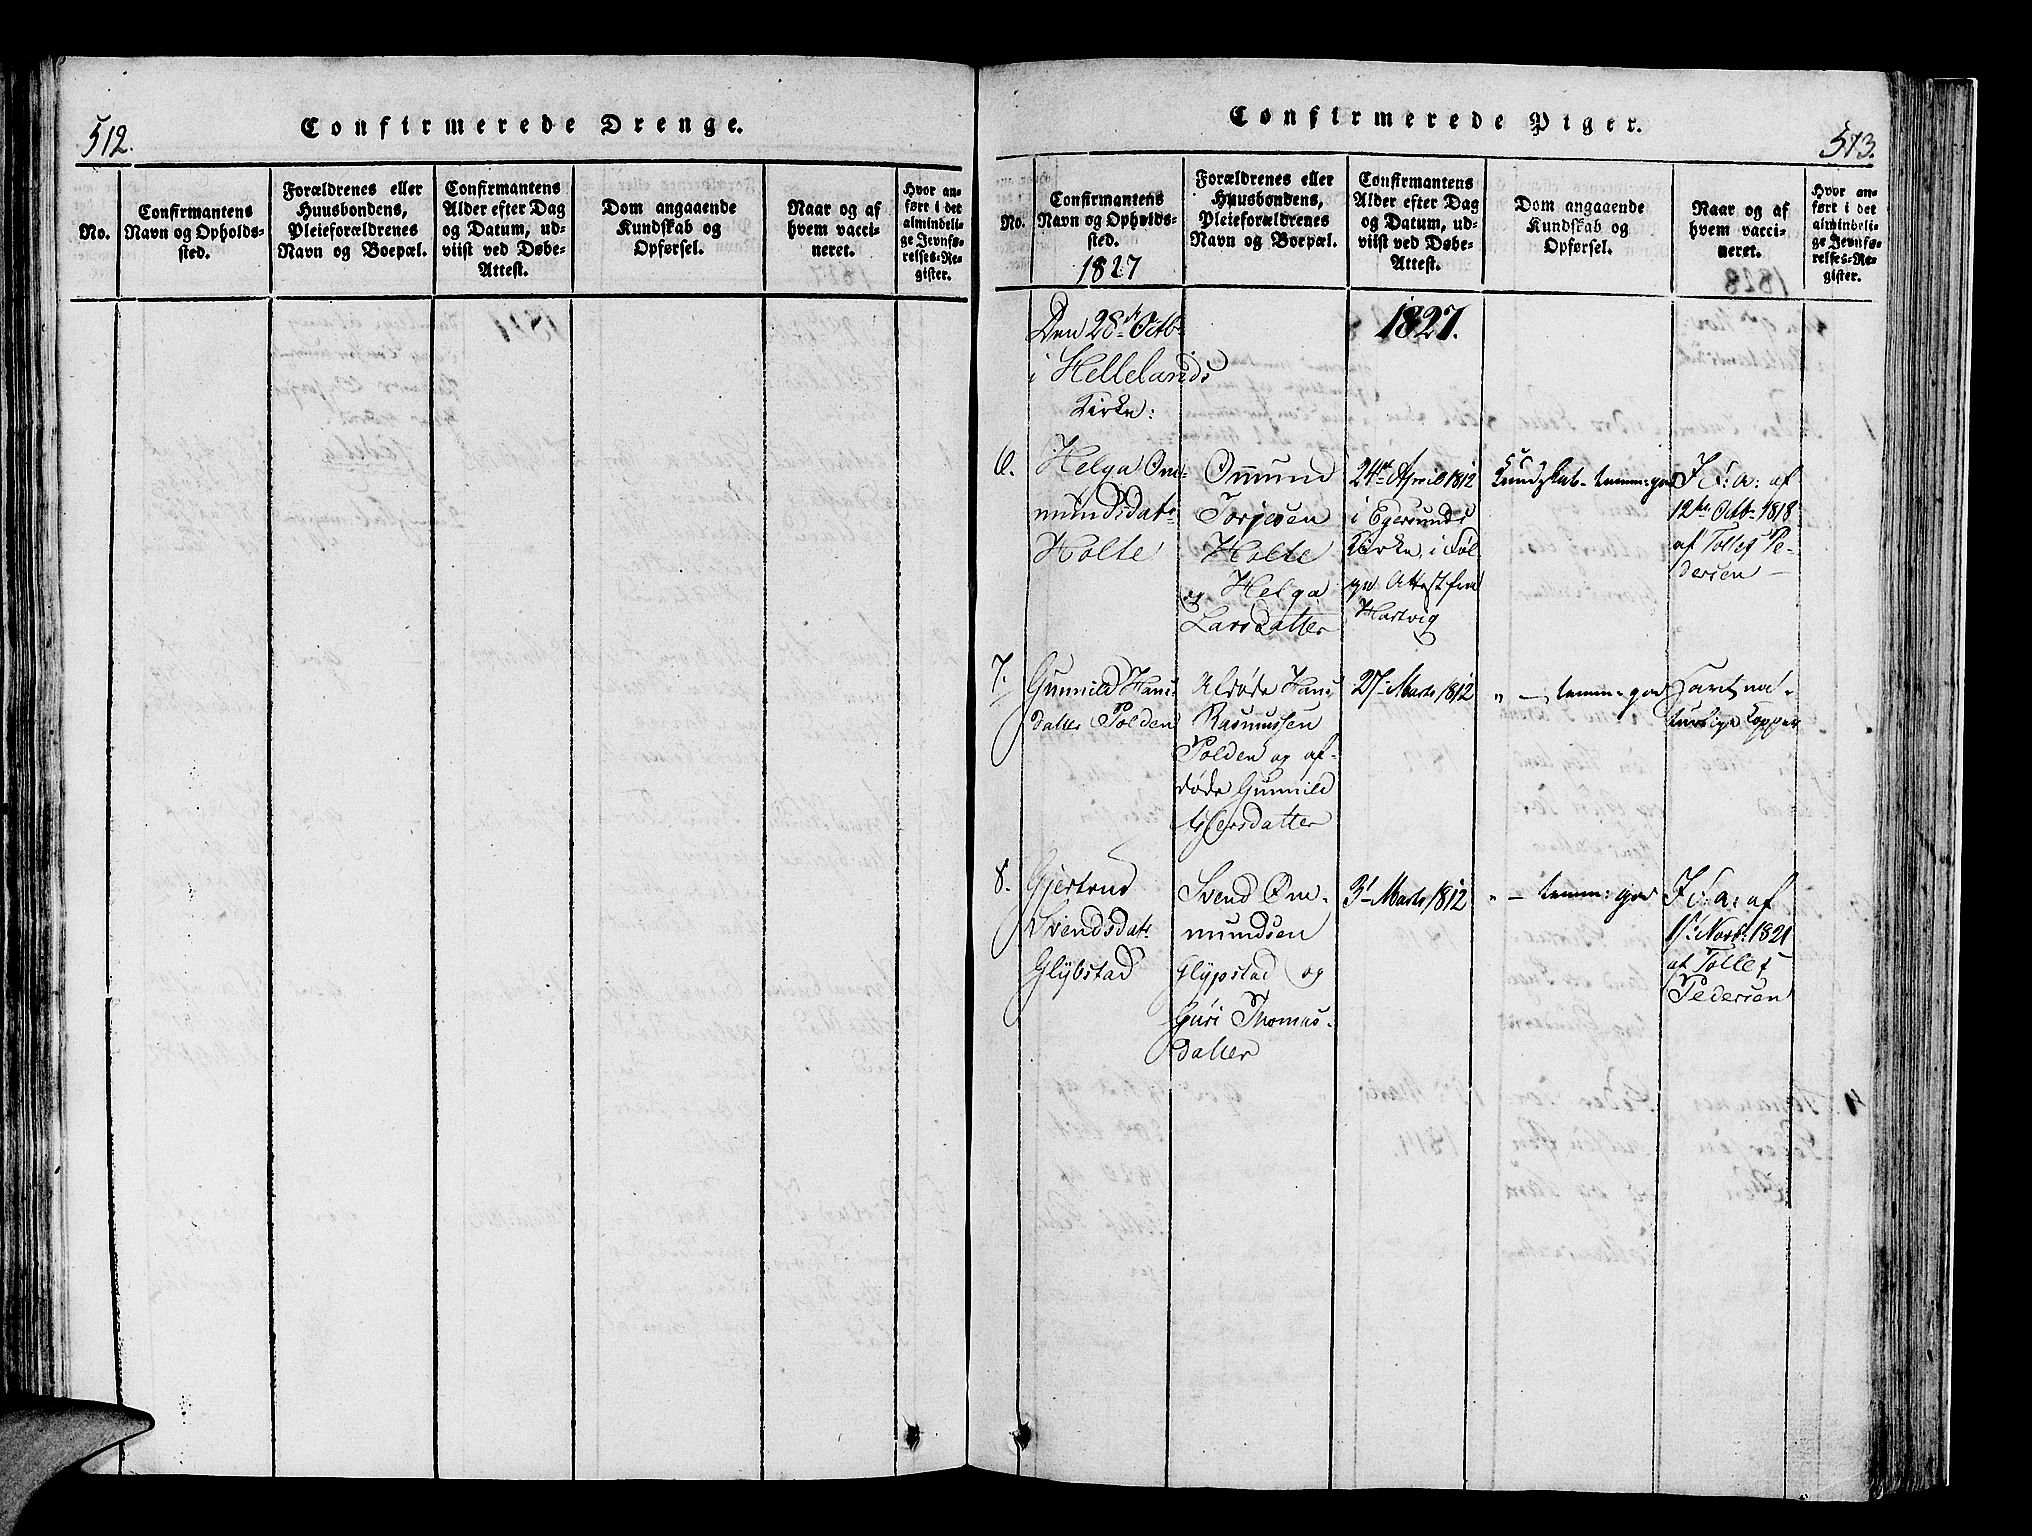 512.
Confirmerede Drenge.
No.
Confirmantens
Navn og Opholds-
sted.
Forældrenes eller
Huusbondens,
Pleieforældrenes
Navn og Boepæl.
Confirmantens
Alder efter Dag
og Datum, ud-
viist ved Døbe-
Attest.
Dom angaaende
Kundskab og
Opførsel.
Naar og af
hvem vacci-
neret.
Hvor an-
ført i det
almindeli-
ge Jevnfø-
relses-Re-
gister.
Confirmerede Piger.
513.
No.
Confirmantens
Navn og Opholds-
sted.
1827
Forældrenes eller
Huusbondens,
Pleieforældrenes
Navn og Boepæl.
Confirmantens
Alder efter Dag
og Datum, ud-
viist ved Døbe-
Attest.
Dom angaaende
Kundskab og
Opførsel.
Naar og af
hvem vacci-
neret.
Hvor an-
ført i det
almindeli-
ge Jevnfø-
relses-Re-
gister.
Den 28de Octb
i Hellelands
Kirke:
1827.
6.
Helga Om-
mundsdatr
Holte
Ommund
Torjesen
Holte
og Helga
Larsdatter
24de April 1812
i Egersunds
Kirke, i Føl
ge Attest fra
Hartvig
Kundskab temm: god
F: a: af
12te Octb 1818
af Tollef Pe-
dersen
7.
Gunnild Hans
datter Polden
Afdøde Hans
Rasmussen
Polden og af-
døde Gunnild
datter
27 Marts 1812
" — temm: god
havt nat-
turlige Kopper
8.
Gjertrud
Svendsdatr
Glybstad
Svend Om-
mundsen
Glypstad og
Guri Thomas-
datter
3d Marts 1812
" — temm: god
F: a: af
1821
af Tollef
Pedersen